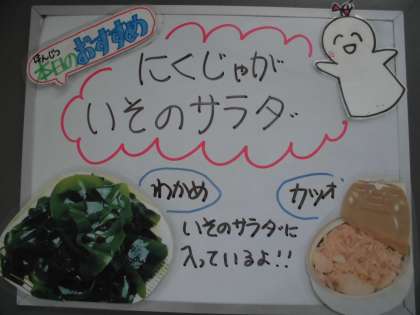 ほんじつ
本日のおすすめ
にくじゃが
いそのサラダ
わかめ
カツオ
いそのサラダに
入っているよ!!